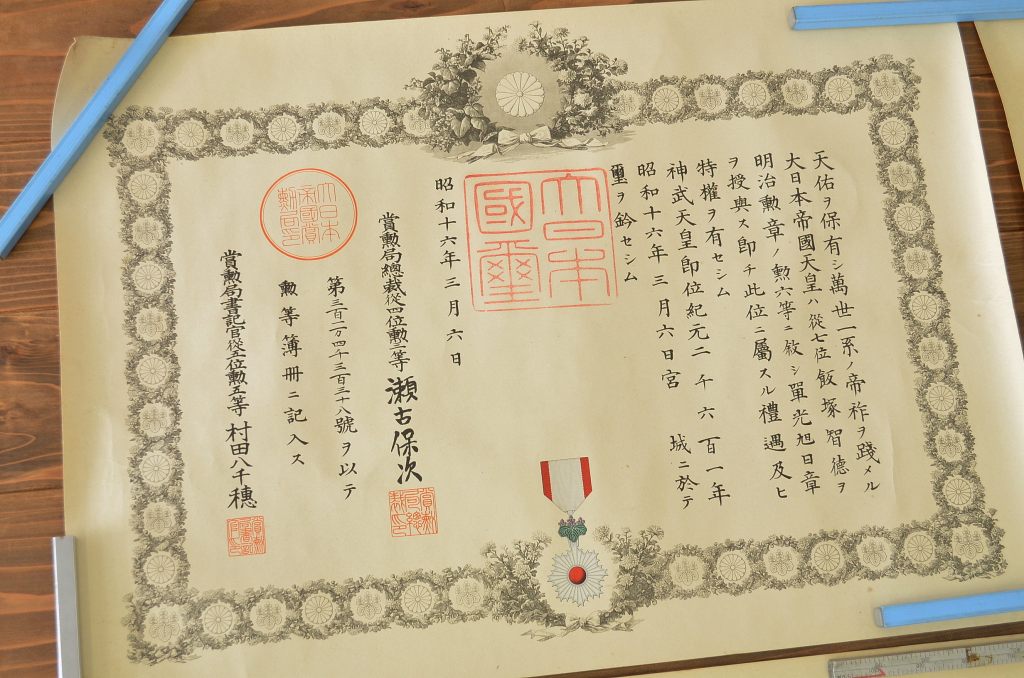 天佑ヲ保有シ萬世一系ノ帝祚ヲ踐メル
大日本帝國天皇ハ從七位飯塚智德ヲ
明治勲章ノ勲六等ニ敍シ單光旭日章
ヲ授與ス即チ此位ニ屬スル禮遇及ヒ
特權ヲ有セシム
神武天皇即位紀元二千六百一年
昭和十六年三月六日宮城ニ於テ
璽ヲ鈐セシム
大日本
國璽
昭和十六年三月六日
賞勲局總裁從四位勲三等瀬古保次
賞勲
局總
裁印
第三百二十四万三百三十八號ヲ以テ
勲等簿冊ニ記入ス
大日本
帝國賞
勲局印
賞勲局書記官從五位勲五等村田八千穗